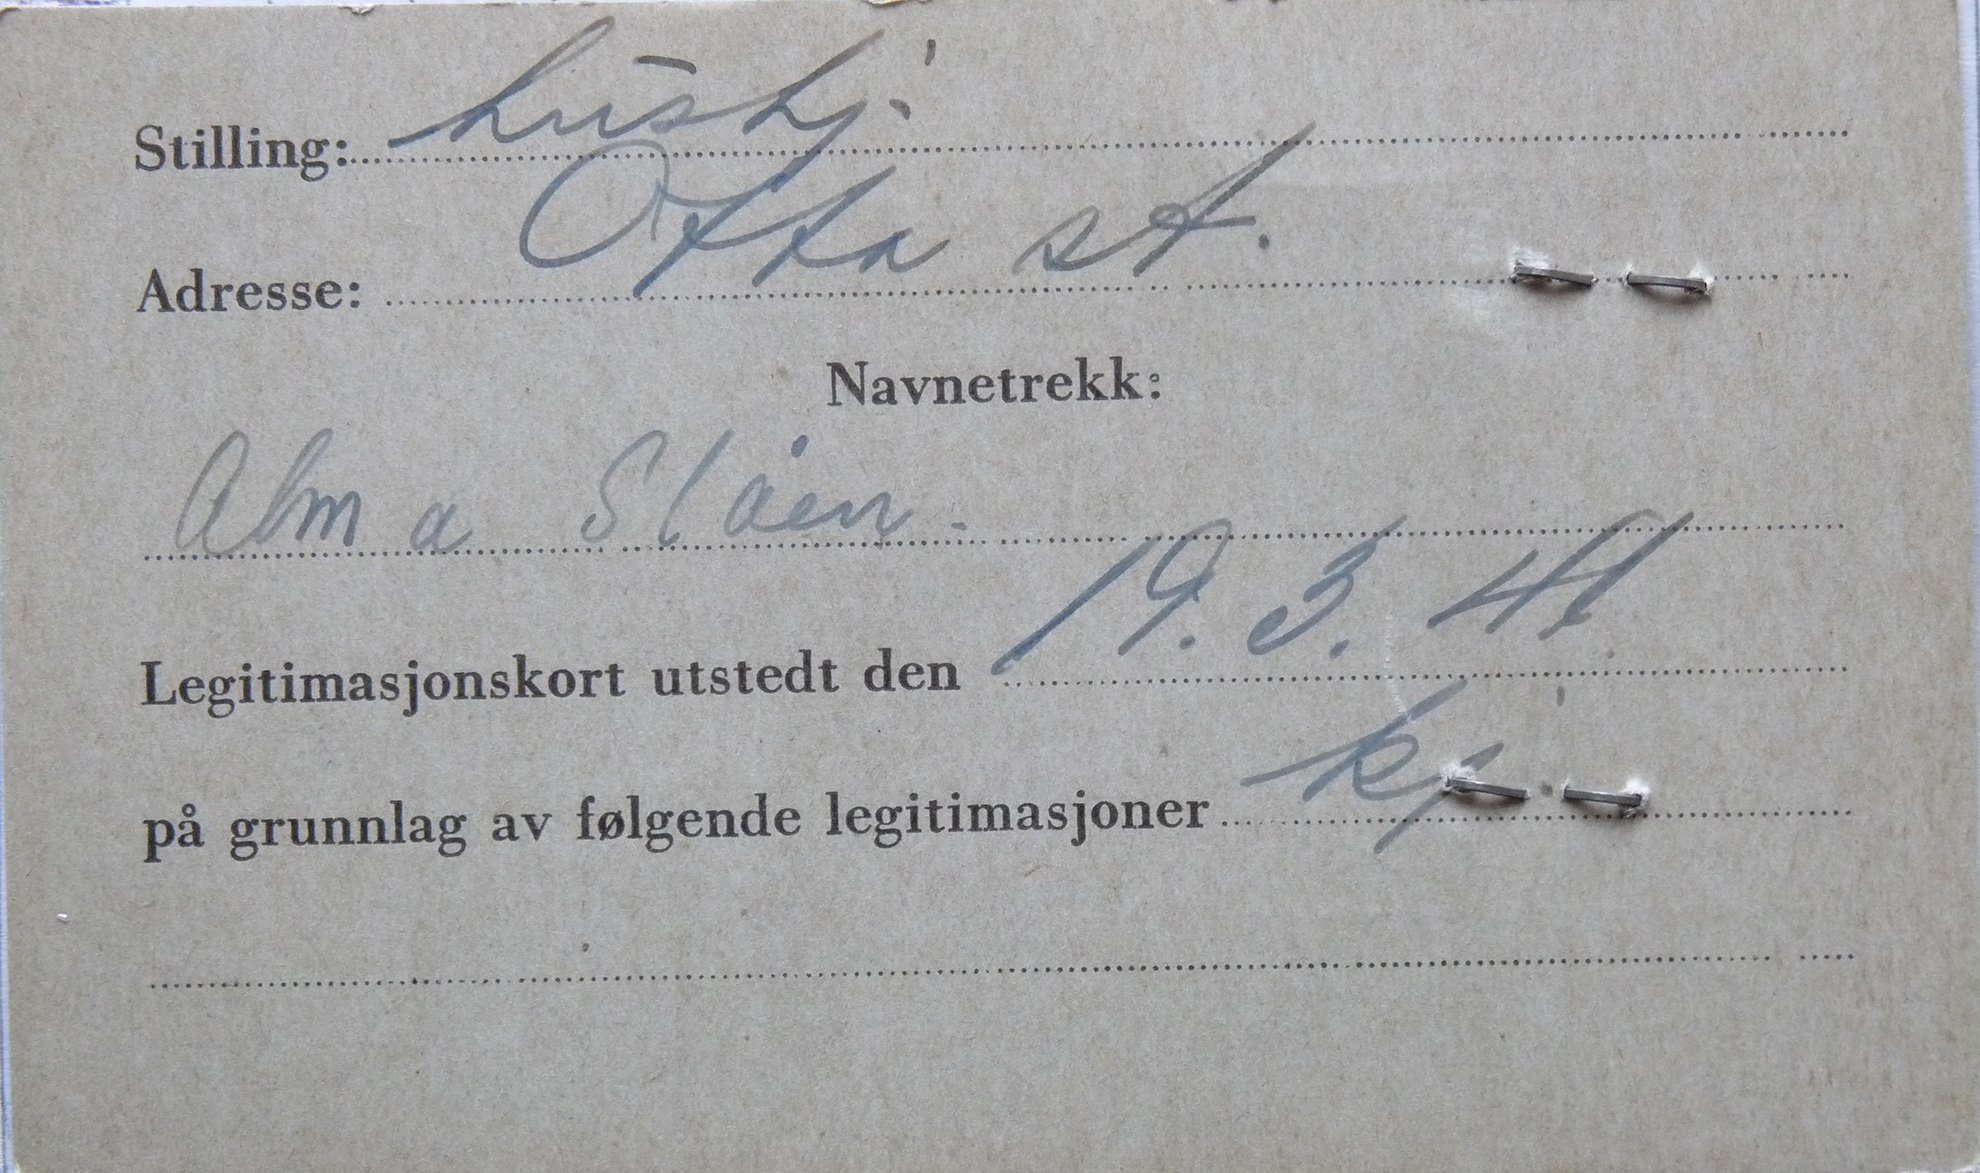 Stilling: hushj.
Adresse: Otta st.
Navnetrekk:
Alma Slåen.
Legitimasjonskort utstedt den 19. 3. 41
på grunnlag av følgende legitimasjoner kj